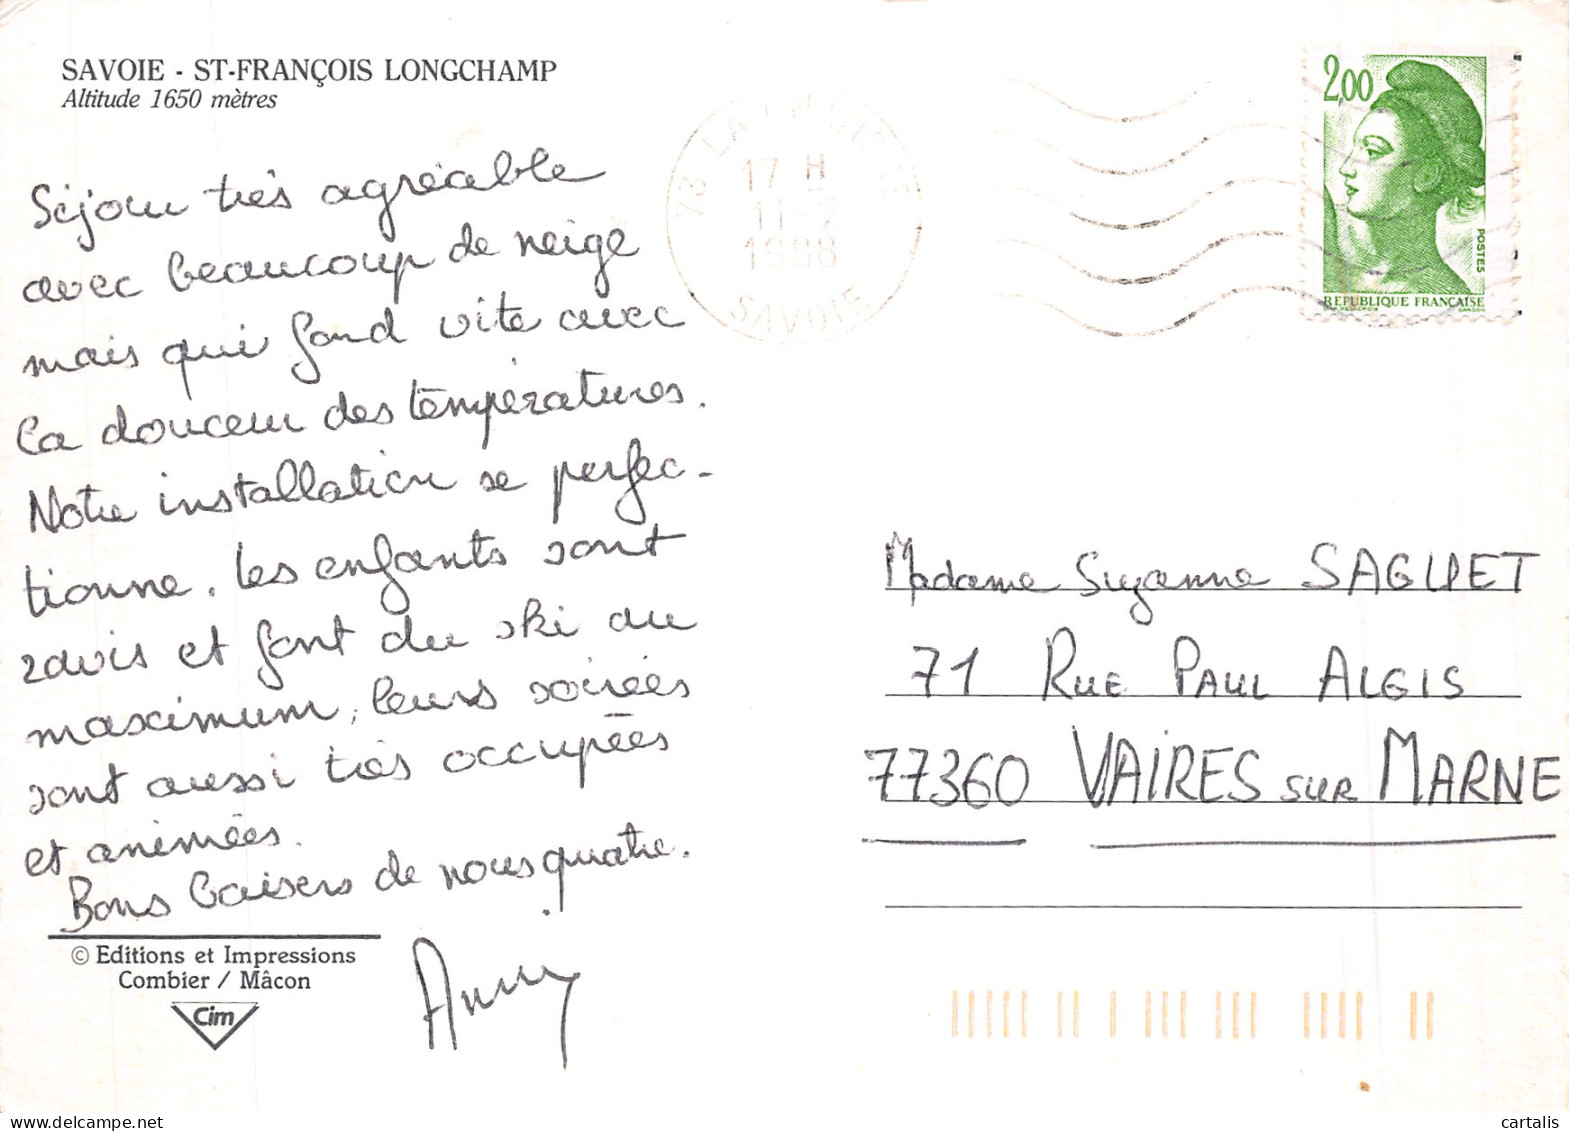 SAVOIE - ST-FRANÇOIS LONGCHAMP
Altitude 1650 mètres
Séjour très agréable
avec beaucoup de neige
mais qui fond vite avec
la douceur des températures.
Notre installation se perfec-
tionne. Les enfants sont
ravis et font du ski au
maximum, leurs soirées
sont aussi très occupées
et animées.
Bons baisers de nous quatre.
Anny
© Editions et Impressions
Combier / Mâcon
Cim
73 LA
17 H
11-2
1988
SAVOIE
2,00
POSTES
REPUBLIQUE FRANÇAISE
GANDON
Madame Suzanne SAGUET
71 RUE PAUL ALGIS
77360 VAIRES SUR MARNE
cartalis